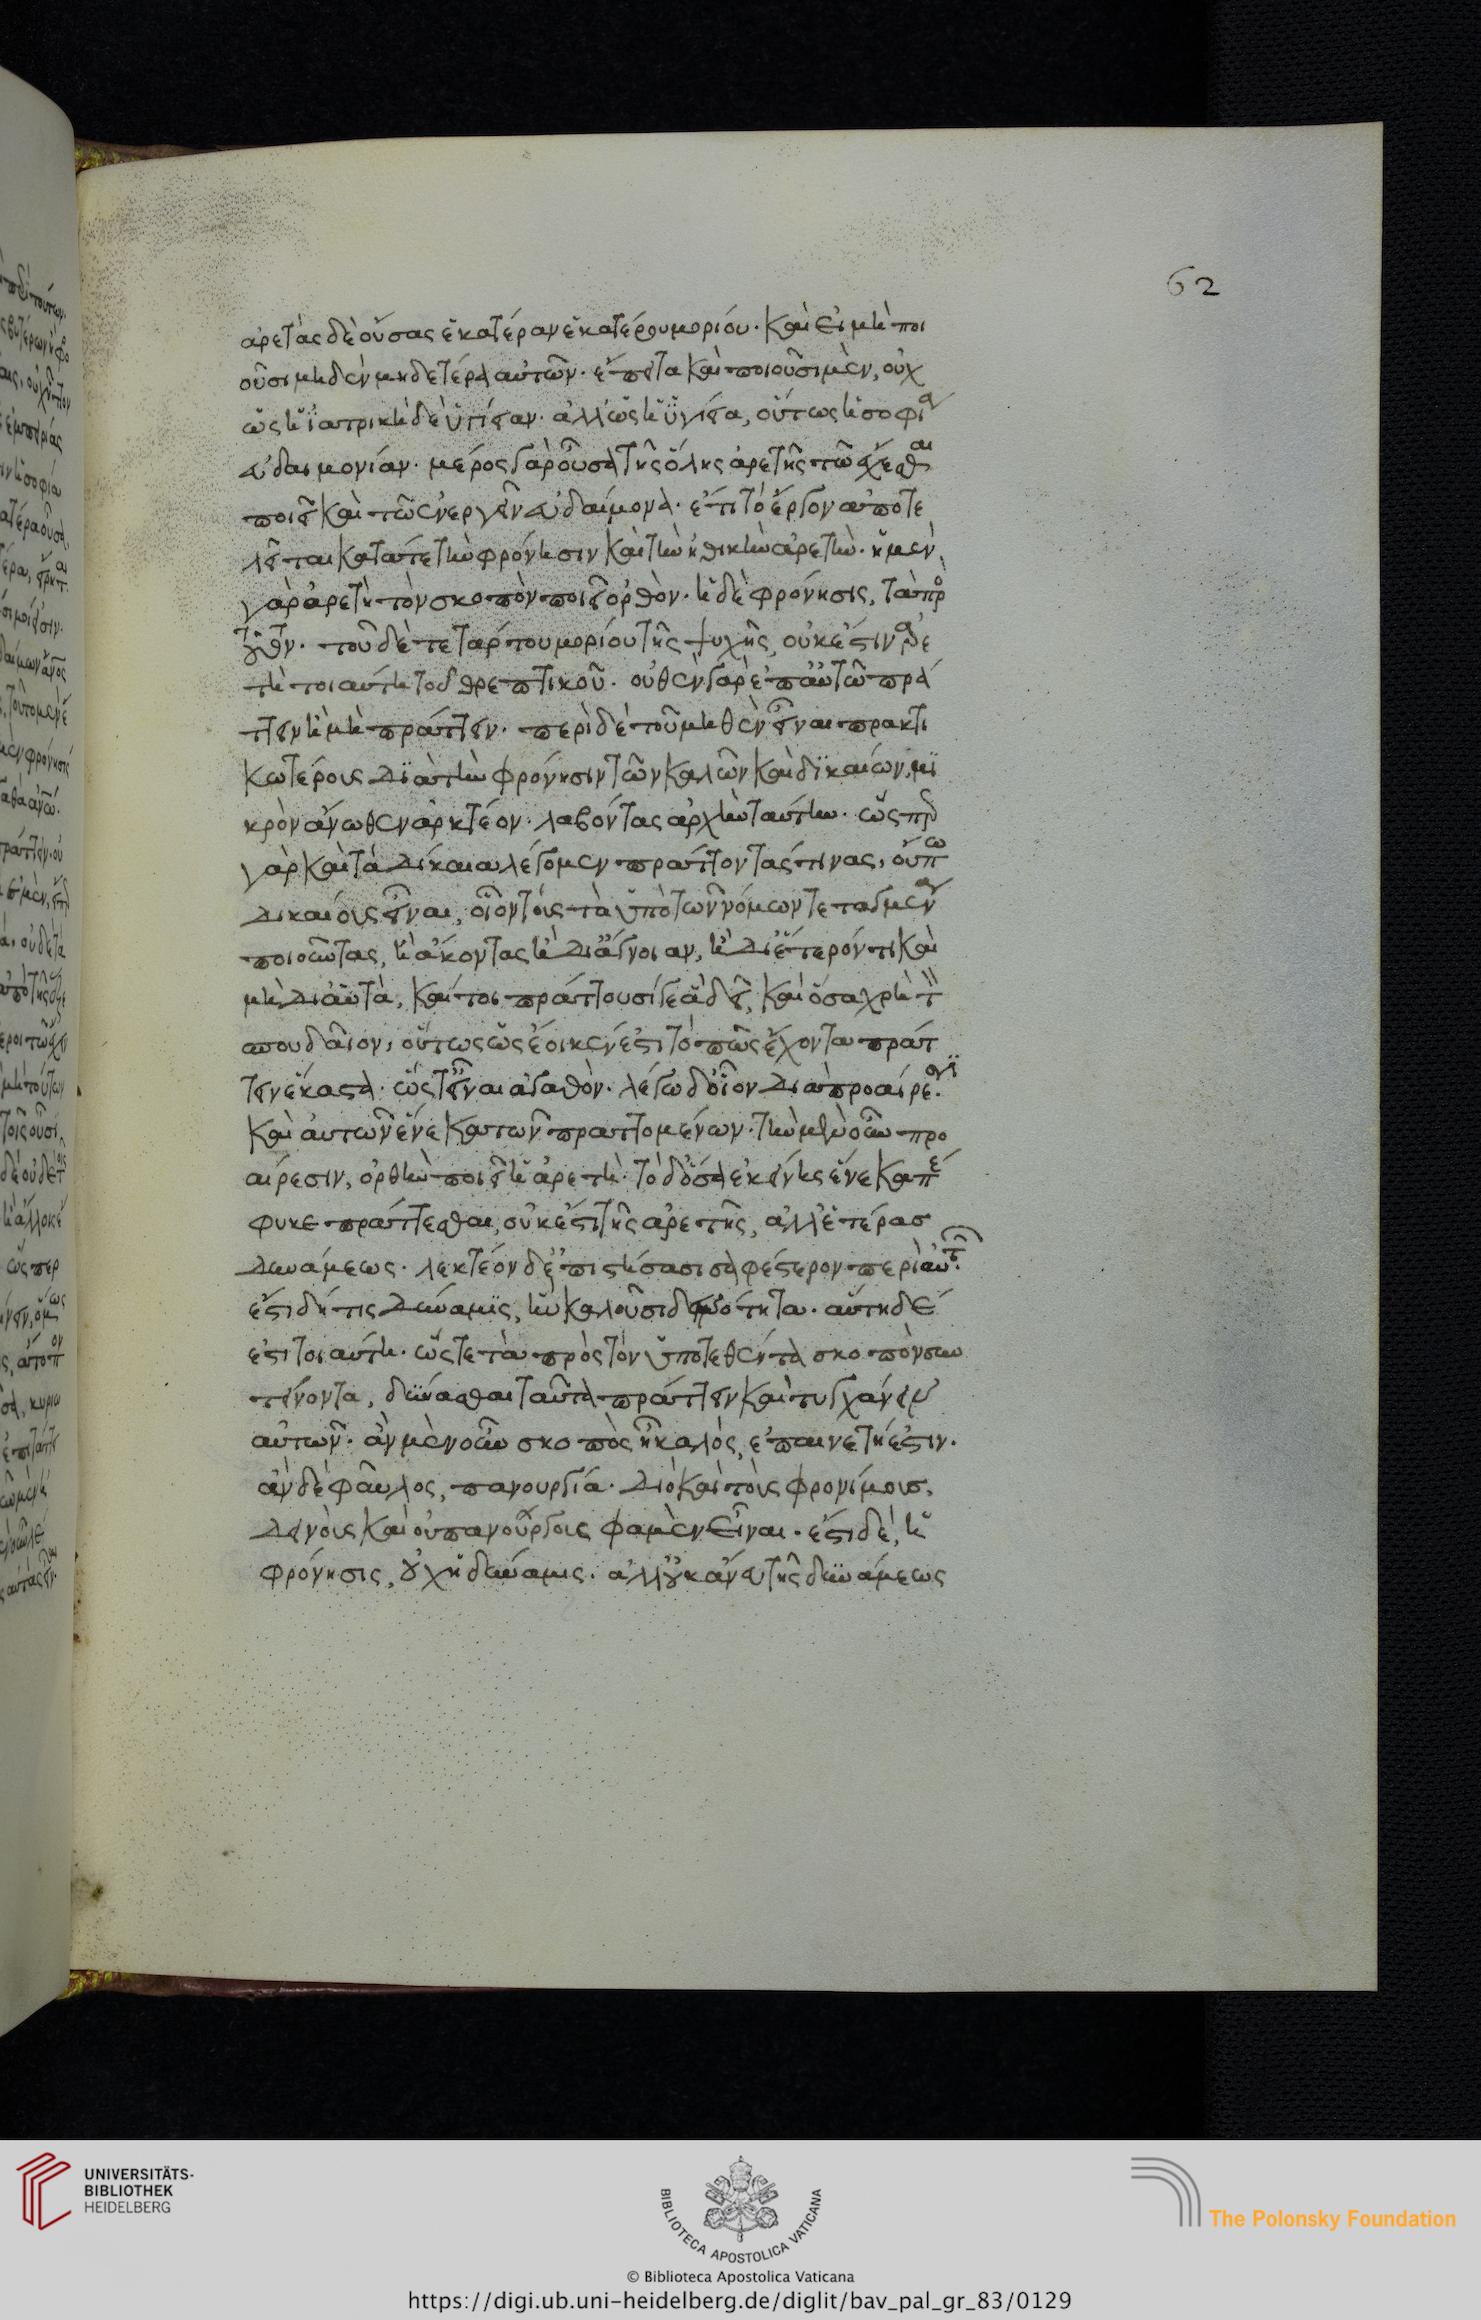 62
ἀρετάς δὲ οὔσας ἑκατέραν ἑκατέρου μορίου. καὶ εἰ μὴ ποι
οῦσι μηδὲν μηδετέρα αὐτῶν. ἔπειτα καὶ ποιοῦσι μὲν, οὐχ
ὡς ἡ ἰατρικὴ δὲ ὑγίειαν. ἀλλ' ὡς ἡ ὑγίεια, οὕτως ἡ σοφία
εὐδαιμονίαν. μέρος γὰρ οὖσα τῆς ὅλης ἀρετῆς τῶ ἔχεσθαι
ποιεῖ καὶ τῶ ἐνεργεῖν εὐδαίμονα. ἔτι τὸ ἔργον ἀποτε
λεῖται κατά τε τὴν φρόνησιν καὶ τὴν ἠθικὴν ἀρετὴν. ἡ μὲν
γὰρ ἀρετὴ τὸν σκοπὸν ποιεῖ ὀρθὸν. ἡ δὲ φρόνησις, τὰ πρὸς
τοῦτον. τοῦ δὲ τετάρτου μορίου τῆς ψυχῆς, οὐκ ἔστιν ἀρε
τὴ τοιαύτη τοῦ θρεπτικοῦ. οὐθὲν γὰρ ἐπ' αὐτῶ πρά
ττειν ἢ μὴ πράττειν. περὶ δὲ τοῦ μηθὲν εἶναι πρακτι
κωτέρους διὰ τὴν φρόνησιν τῶν καλῶν καὶ δικαίων, μι
κρὸν ἄνωθεν ἀρκτέον. λαβόντας ἀρχὴν ταύτην. ὥσπερ
γὰρ καὶ τὰ δίκαια λέγομεν πράττοντάς τινας, οὔπω
δικαίους εἶναι, οἷον τοὺς τὰ ὑπὸ τῶν νόμων τεταγμένα
ποιοῦντας, ἢ ἄκοντας ἢ δι' ἄγνοιαν, ἢ δι' ἕτερόν τι καὶ
μὴ δι' αὐτὰ, καίτοι πράττουσί γε ἃ δεῖ, καὶ ὅσα χρὴ τὸν
σπουδαῖον, οὕτως ὡς ἔοικεν ἔστι τό πως ἔχοντα πράτ
τειν ἕκαστα. ὥστ' εἶναι ἀγαθὸν. λέγω δ' οἷον διὰ προαίρεσιν.
καὶ αὐτῶν ἕνεκα τῶν πραττομένων. τὴν μὲν οὖν προ
αίρεσιν, ὀρθὴν ποιεῖ ἡ ἀρετὴ. τὸ δ' ὅσα ἐκείνης ἕνεκα πέ
φυκε πράττεσθαι, οὐκ ἔστι τῆς ἀρετῆς, ἀλλ' ἑτέρας
δυνάμεως. λεκτέον δ' ἐπιστήσασι σαφέστερον περὶ αὐτῶν.
ἔστι δή τις δύναμις, ἣν καλοῦσι δεινότητα. αὕτη δέ
ἐστι τοιαύτη. ὥστε τὰ πρὸς τὸν ὑποτεθέντα σκοπὸν συν
τείνοντα, δύνασθαι ταῦτα πράττειν καὶ τυγχάνειν
αὐτῶν. ἂν μὲν οὖν σκοπὸς ἦ καλὸς, ἐπαινετή ἐστιν.
ἂν δὲ φαῦλος, πανουργία. διὸ καὶ τοὺς φρονίμους,
δεινοὺς καὶ οὐ πανούργους φαμὲν εἶναι. ἔστι δὲ, ἡ
φρόνησις, οὐχ ἡ δύναμις. ἀλλ' οὐκ ἄνευ τῆς δυνάμεως
UNIVERSITÄTS-
BIBLIOTHEK
HEIDELBERG
BIBLIOTECA APOSTOLICA VATICANA
The Polonsky Foundation
© Biblioteca Apostolica Vaticana
https://digi.ub.uni-heidelberg.de/diglit/bav_pal_gr_83/0129